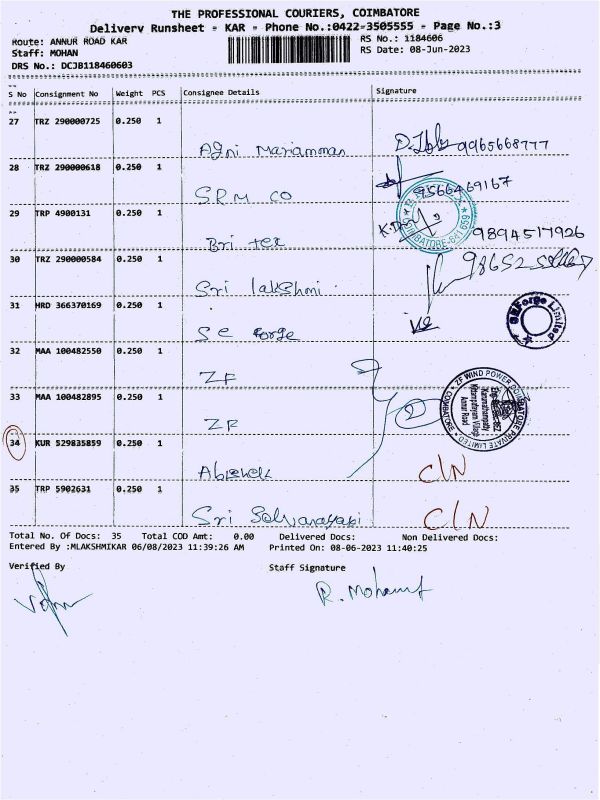 THE PROFESSIONAL COURIERS, COIMBATORE
Delivery Runsheet - KAR - Phone No.:0422-3505555 - Page No.:3
Route: ANNUR ROAD KAR RS No.: 1184606
Staff: MOHAN RS Date: 08-Jun-2023
DRS No.: DCJB118460603
S No Consignment No Weight PCS Consignee Details Signature
27 TRZ 290000725 0.250 1
Agni Mariamman 9965668777
28 TRZ 290000618 0.250 1
S.R.M CO 9566469167
29 TRP 4900131 0.250 1
Bri tex 9894517926
30 TRZ 290000584 0.250 1
Sri lakshmi 98652
31 HRD 366370169 0.250 1
SE Forge
SEForge Limited
32 MAA 100482550 0.250 1
ZF
33 MAA 100482895 0.250 1
ZF 2
ZF WIND POWER COIMBATORE PRIVATE LIMITED
Annur Road
34 KUR 529835859 0.250 1
C/N
35 TRP 5902631 0.250 1
Sri C/N
Total No. Of Docs: 35 Total COD Amt: 0.00 Delivered Docs: Non Delivered Docs:
Entered By :MLAKSHMIKAR 06/08/2023 11:39:26 AM Printed On: 08-06-2023 11:40:25
Verified By Staff Signature
R. Mohan